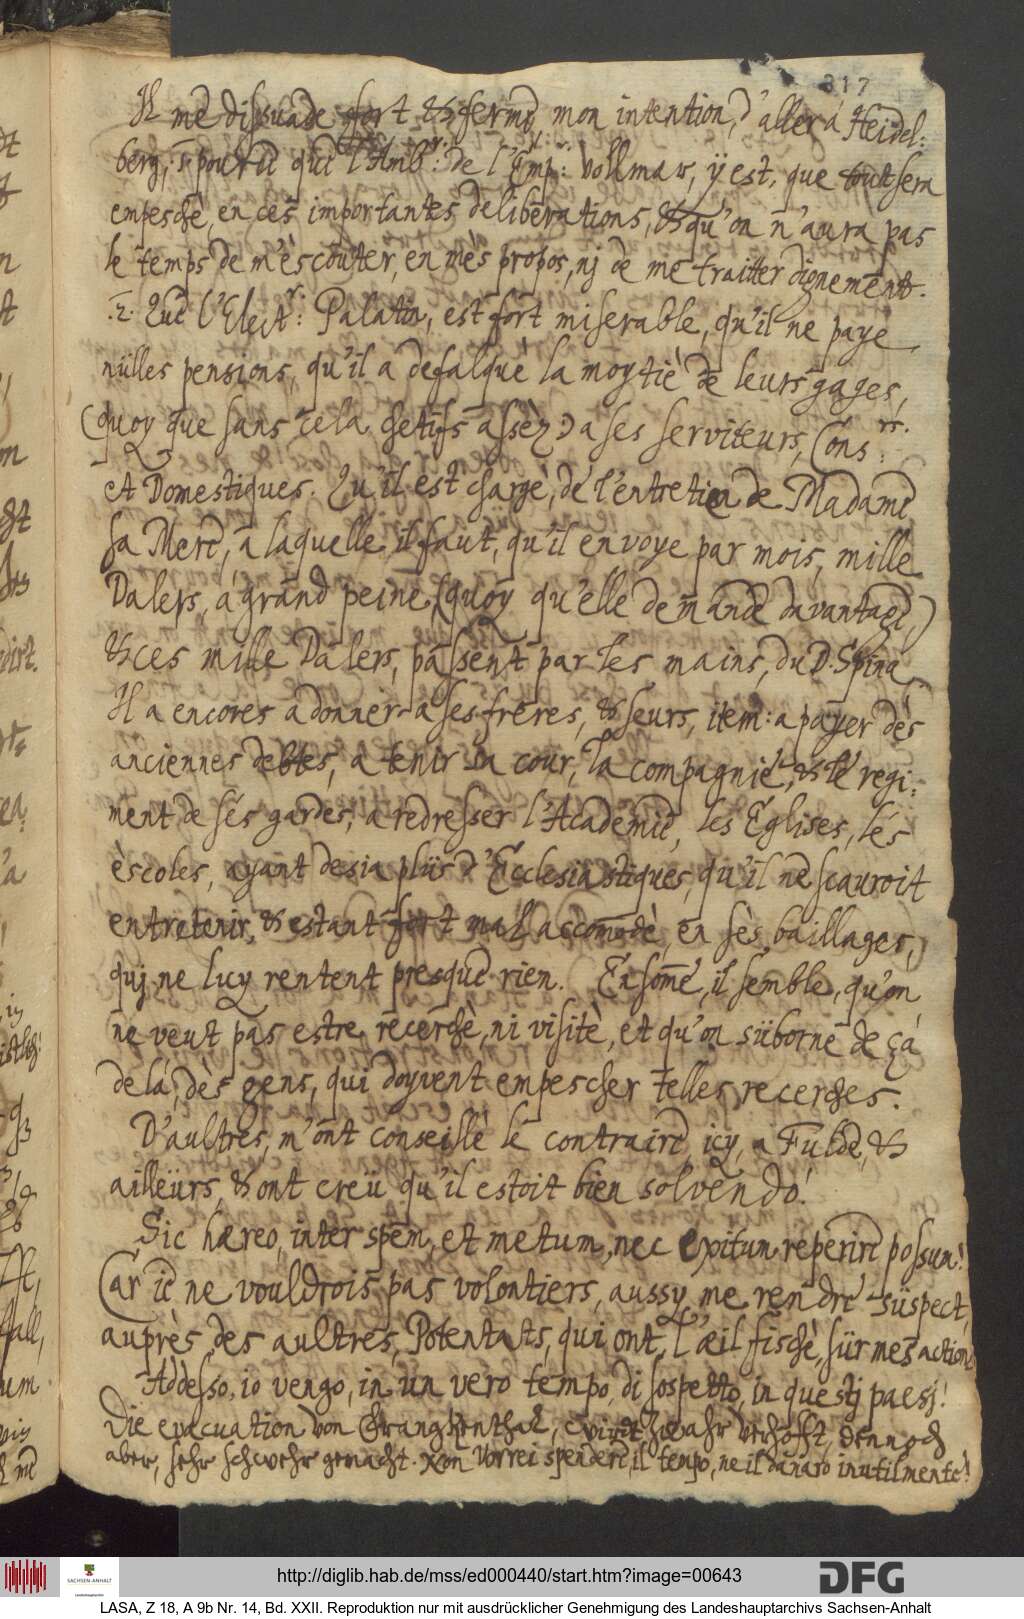 317
Il me dissuade fort & ferme, mon intention, d'aller á Heidel:
berg, 1. pource que l'Amb:r de l'Emp:r Vollmar, ÿ est, que tout sera
empeschè, en ces importantes deliberations, & qu'on n'aura pas
le temps de m'èscouter, en mes propos, nj de me traitter dignement.
.2. Que l'Elect:r Palatin, est fort miserable, qu'il ne paye,
nülles pensions, qu'il a defalquè la moytiè de leurs gages,
(quoy que sans cela chetifs assèz:) a ses serviteurs, Cons:rs
et Domestiques. Qu'il est chargè, de l'entretien de Madame
sa Mere, a laquelle il faut, qu'il envoye par mois, mille
Dalers, a grand peine, (quoy qu'elle demande davantage,)
& ces mille Dalers, passent par les mains, du D. Spina
Il a encores a donner a ses freres, & seurs, item: a payer dès
anciennes debtes, a tenir sa cour, la compagnie, & le regi:
ment de sés gardes, a redresser l'Academie, les Eglises, lés
èscoles, ayant desia plüs d'Ecclesiastiques, qu'il ne scauroit
entretenir, & estant fort mal accomodè, en ses baillages,
quj ne luy rentent presque rien. En somme, il semble, qu'on
ne veut pas estre recerchè, ni visitè, et qu'on süborne de çá
de lá, dès gens, qui doyvent empescher telles recerches.
D'aultres, m'ont conseillè le contraire, icy, a Fulde, &
ailleürs, & ont creü qu'il estoit bien solvendo!
Sic hæreo, inter spem, et metum, nec exitum reperire possum!
Car ie ne vouldrois pas volontiers, aussy me rendre süspect,
auprès des aultres, Potentats, qui ont, l'œil fischè, sür mes action
Addesso, io vengo, in un vero tempo, di sospetto, in questj paesj!
Die evacuation von Franghenthal, wirdt zwahr verhofft, dennoch
aber, sehr schwehr gemacht. Non vorrei spendere, il tempo, ne il danaro inutilmente!
http://diglib.hab.de/mss/ed000440/start.htm?image=00643
SACHSEN-ANHALT
DFG
LASA, Z 18, A 9b Nr. 14, Bd. XXII. Reproduktion nur mit ausdrücklicher Genehmigung des Landeshauptarchivs Sachsen-Anhalt